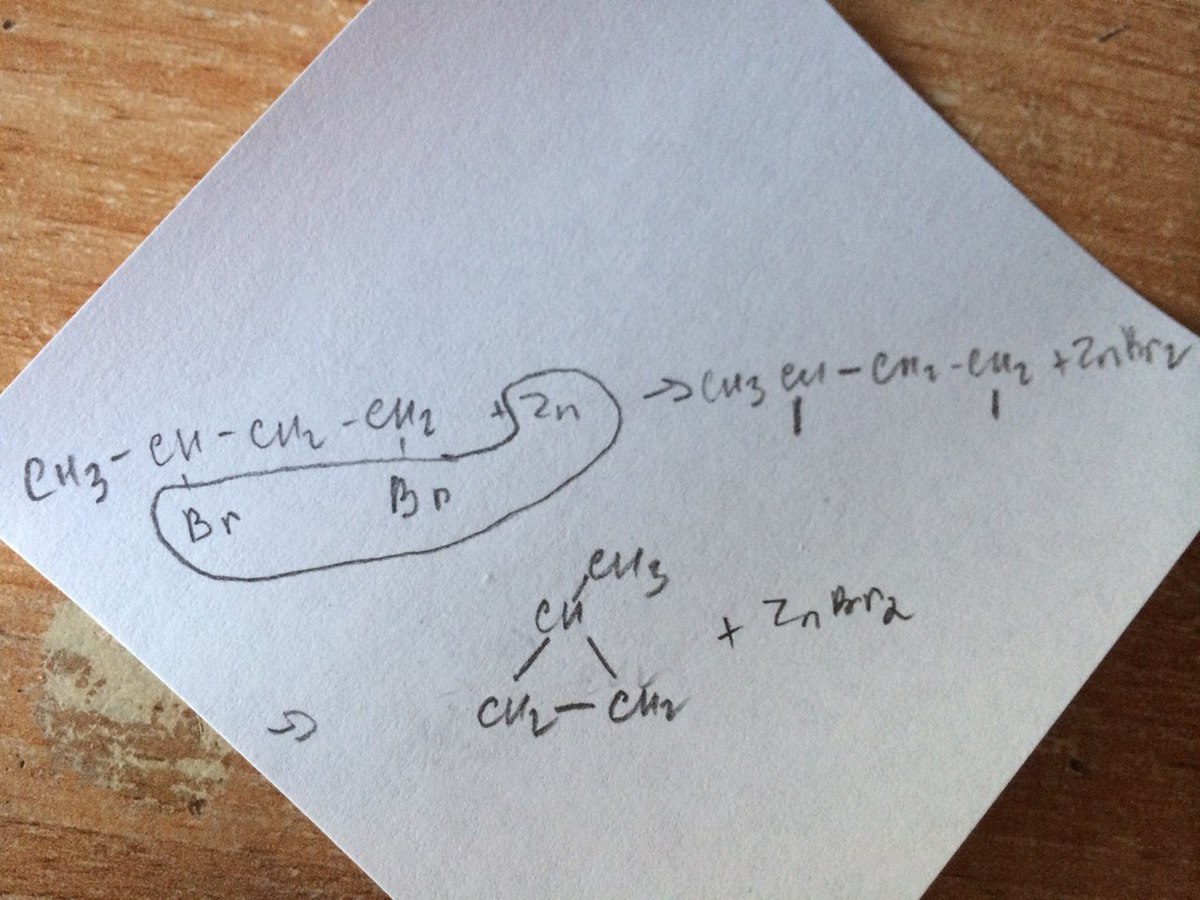 CH3 - CH - CH2 - CH2 + Zn → CH3 CH - CH2 - CH2 + ZnBr2
Br Br
CH3
CH
CH2 - CH2 + ZnBr2
→